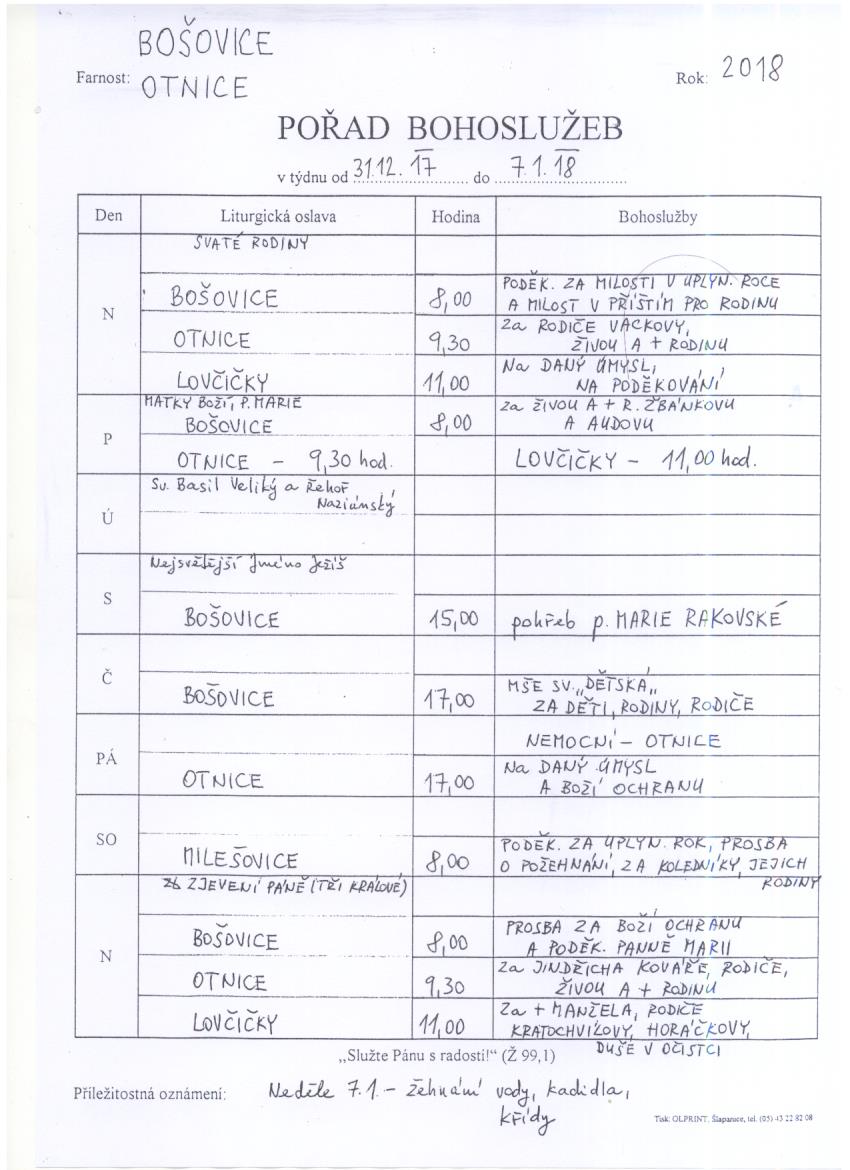 BOŠOVICE
Farnost: OTNICE
Rok: 2018
POŘAD BOHOSLUŽEB
v týdnu od 31.12. 17 do 7.1. 18
Den Liturgická oslava Hodina Bohoslužby
N
SVATÉ RODINY
BOŠOVICE 8,00 PODĚK. ZA MILOSTI V UPLYN. ROCE
A MILOST V PŘÍŠTÍM PRO RODINU
OTNICE 9,30 Za RODIČE VACKOVY,
ŽIVOU A + RODINU
LOVČIČKY 11,00 Na DANÝ ÚMYSL,
NA PODĚKOVÁNÍ
P
MATKY BOŽÍ, P. MARIE
BOŠOVICE 8,00 Za ŽIVOU A + R. ŽBÁNKOVU
A AUDOVU
OTNICE – 9,30 hod. LOVČIČKY – 11,00 hod.
Ú
Sv. Basil Veliký a Řehoř
Naziánský
S
Nejsvětější Jméno Ježíš
BOŠOVICE 15,00 pohřeb p. MARIE RAKOVSKÉ
Č
BOŠOVICE 17,00 MŠE SV. „DĚTSKÁ„
ZA DĚTI, RODINY, RODIČE
PÁ
NEMOCNÍ – OTNICE
OTNICE 17,00 Na DANÝ ÚMYSL
A BOŽÍ OCHRANU
SO
MILEŠOVICE 8,00 PODĚK. ZA UPLYN. ROK, PROSBA
O POŽEHNÁNÍ, ZA KOLEDNÍKY, JEJICH
RODINY
N
ZJEVENÍ PÁNĚ (TŘI KRÁLOVÉ)
BOŠOVICE 8,00 PROSBA ZA BOŽÍ OCHRANU
A PODĚK. PANNĚ MARII
OTNICE 9,30 Za JINDŘICHA KOVÁŘE, RODIČE,
ŽIVOU A + RODINU
LOVČIČKY 11,00 Za + MANŽELA, RODIČE
KRATOCHVÍLOVY, HORÁČKOVY,
DUŠE V OČISTCI
„Služte Pánu s radostí!“ (Ž 99,1)
Příležitostná oznámení: Neděle 7.1. – žehnání vody, kadidla,
křídy
Tisk: OLPRINT, Šlapanice, tel. (05) 43 22 82 08